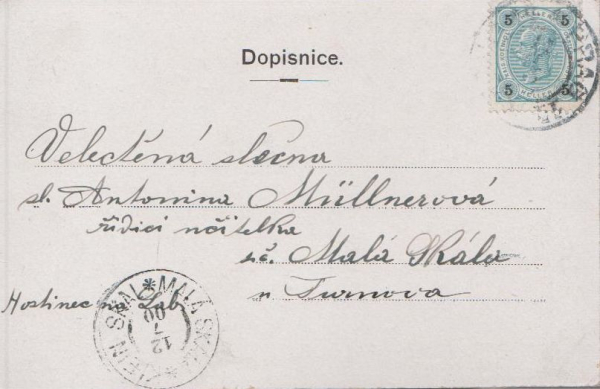 Dopisnice.
5 5
5 5
PRAG
Velectěná slečna
sl. Antonina Müllnerová
řídící učitelka
Malá Skála
u Turnova
Hostinec na Lab
KLEIN SKAL * MALÁ SKÁLA
12
7
00